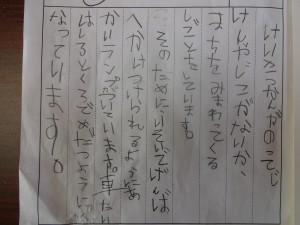 けいさつかんがのって
けんやじこがないか、
まちをみまわってくる
しごとをしています。
そのためにいそいでげんば
へかけつけられるように、あ
かいランプがついています。車たい
はしろとくろでめだつように
なっています。